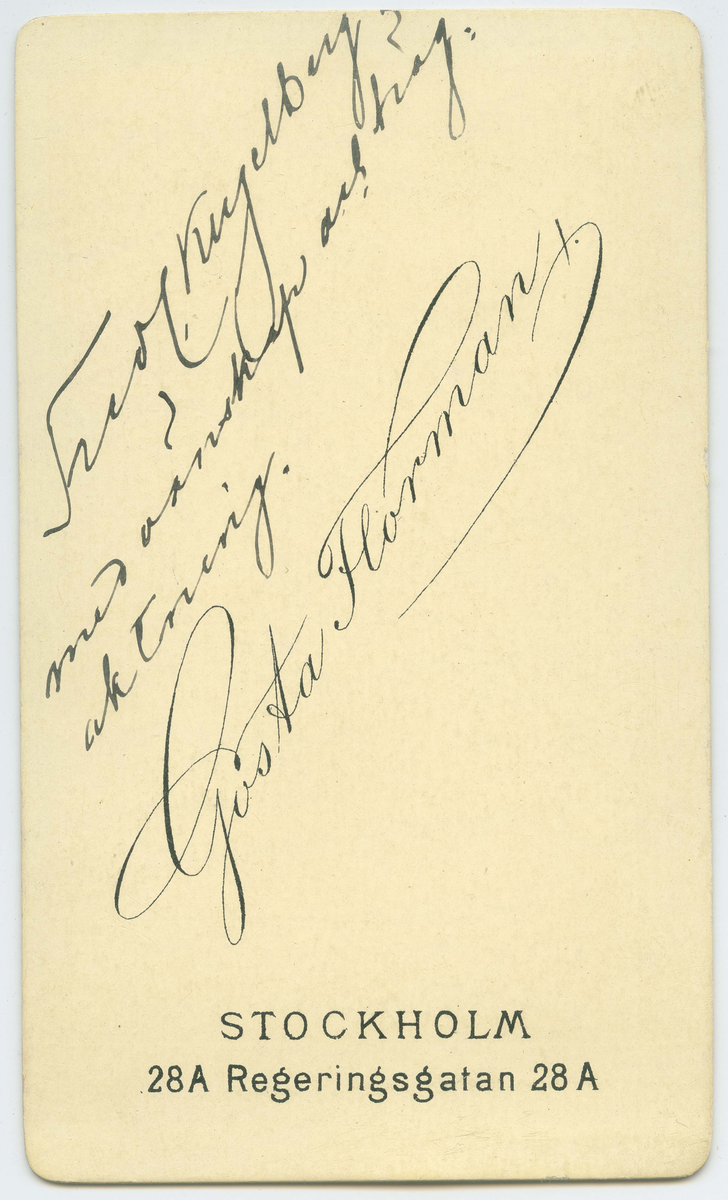 Fredr Kugelberg
med vänskap och hög
aktning.
Gösta Florman
STOCKHOLM
28A Regeringsgatan 28A